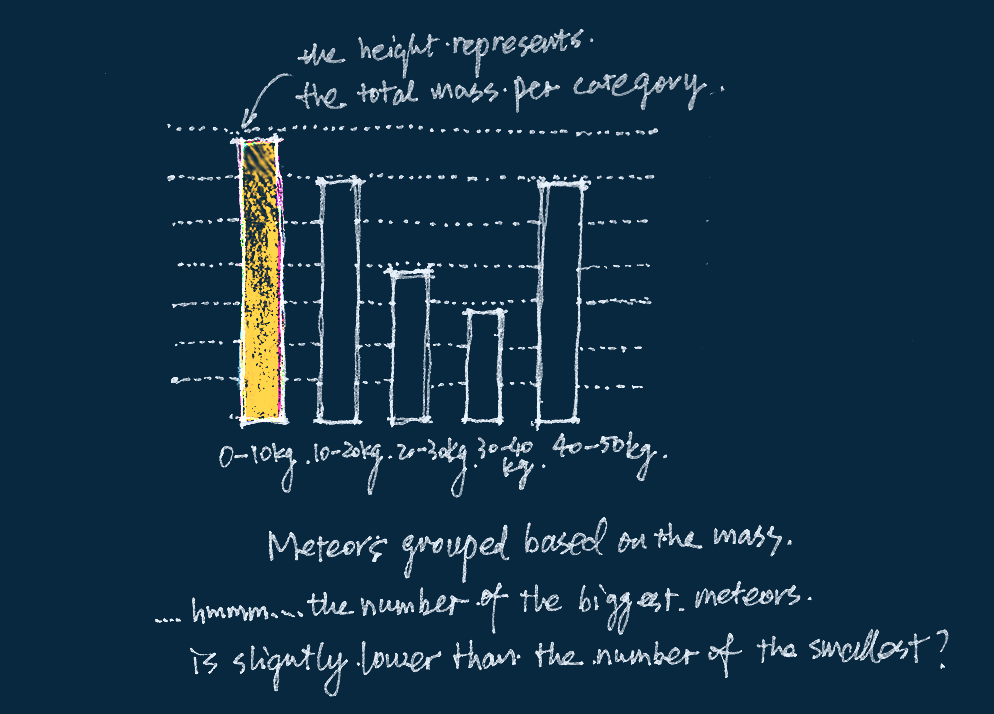 the height represents.
the total mass per category.
0-10kg. 10-20kg. 20-30kg. 30-40 kg. 40-50kg.
Meteors grouped based on the mass.
.... hmmm.... the number of the biggest meteors.
is slightly lower than the number of the smallest?